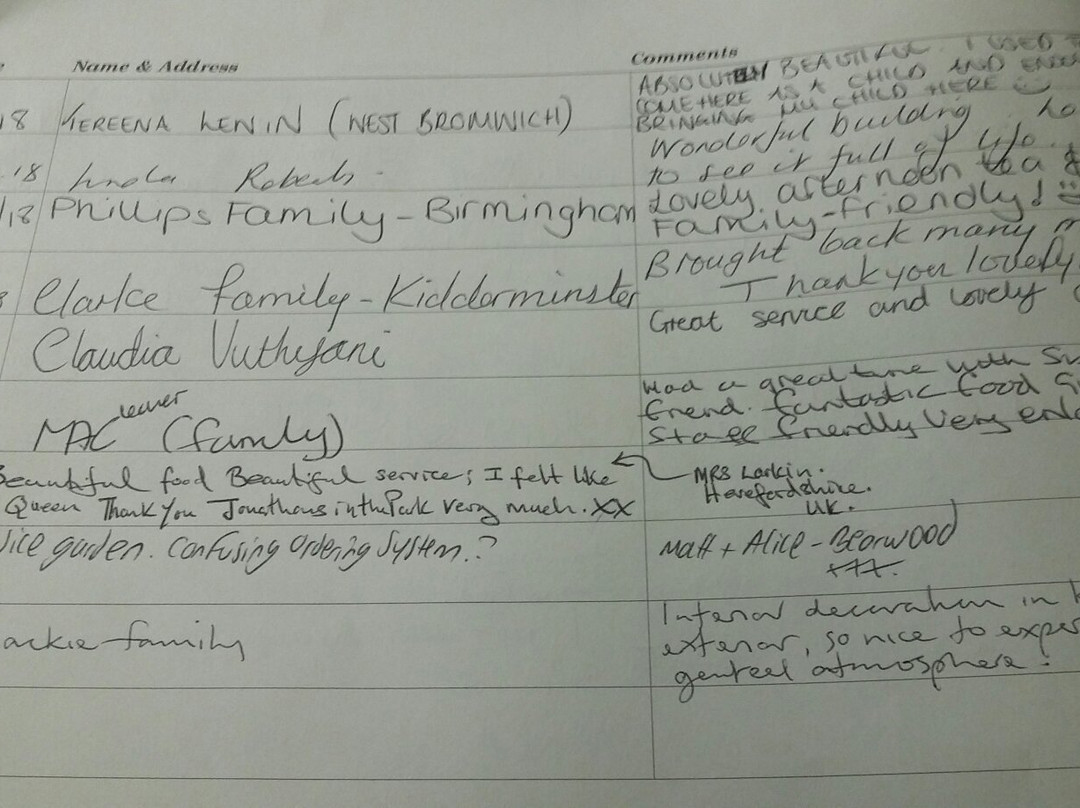 Name & Address
Comments
18 KEREENA LENIN (WEST BROMWICH)
ABSOLUTELY BEAUTIFUL. I USED
COME HERE AS A CHILD AND
BRINGING MY CHILD HERE
.18 Linda Roberts.
Wonderful building
to see it full of life.
/18 Phillips Family - Birmingham
Lovely afternoon tea &
Family-friendly!
Clarke family - Kidderminster
Brought back many
Thank you lovely
Claudia Vuthyani
Great service and lovely
MAC leaver (family)
Had a great time with
friend. fantastic food
Staff friendly very
Beautiful food Beautiful service; I felt like
Queen Thank you Jonathans in the Park very much. XX
MRS Larkin.
Herefordshire.
UK.
Nice garden. Confusing Ordering System.?
Matt + Alice - Bearwood
ackie family
Internal decoration in
exterior, so nice to
genteel atmosphere.